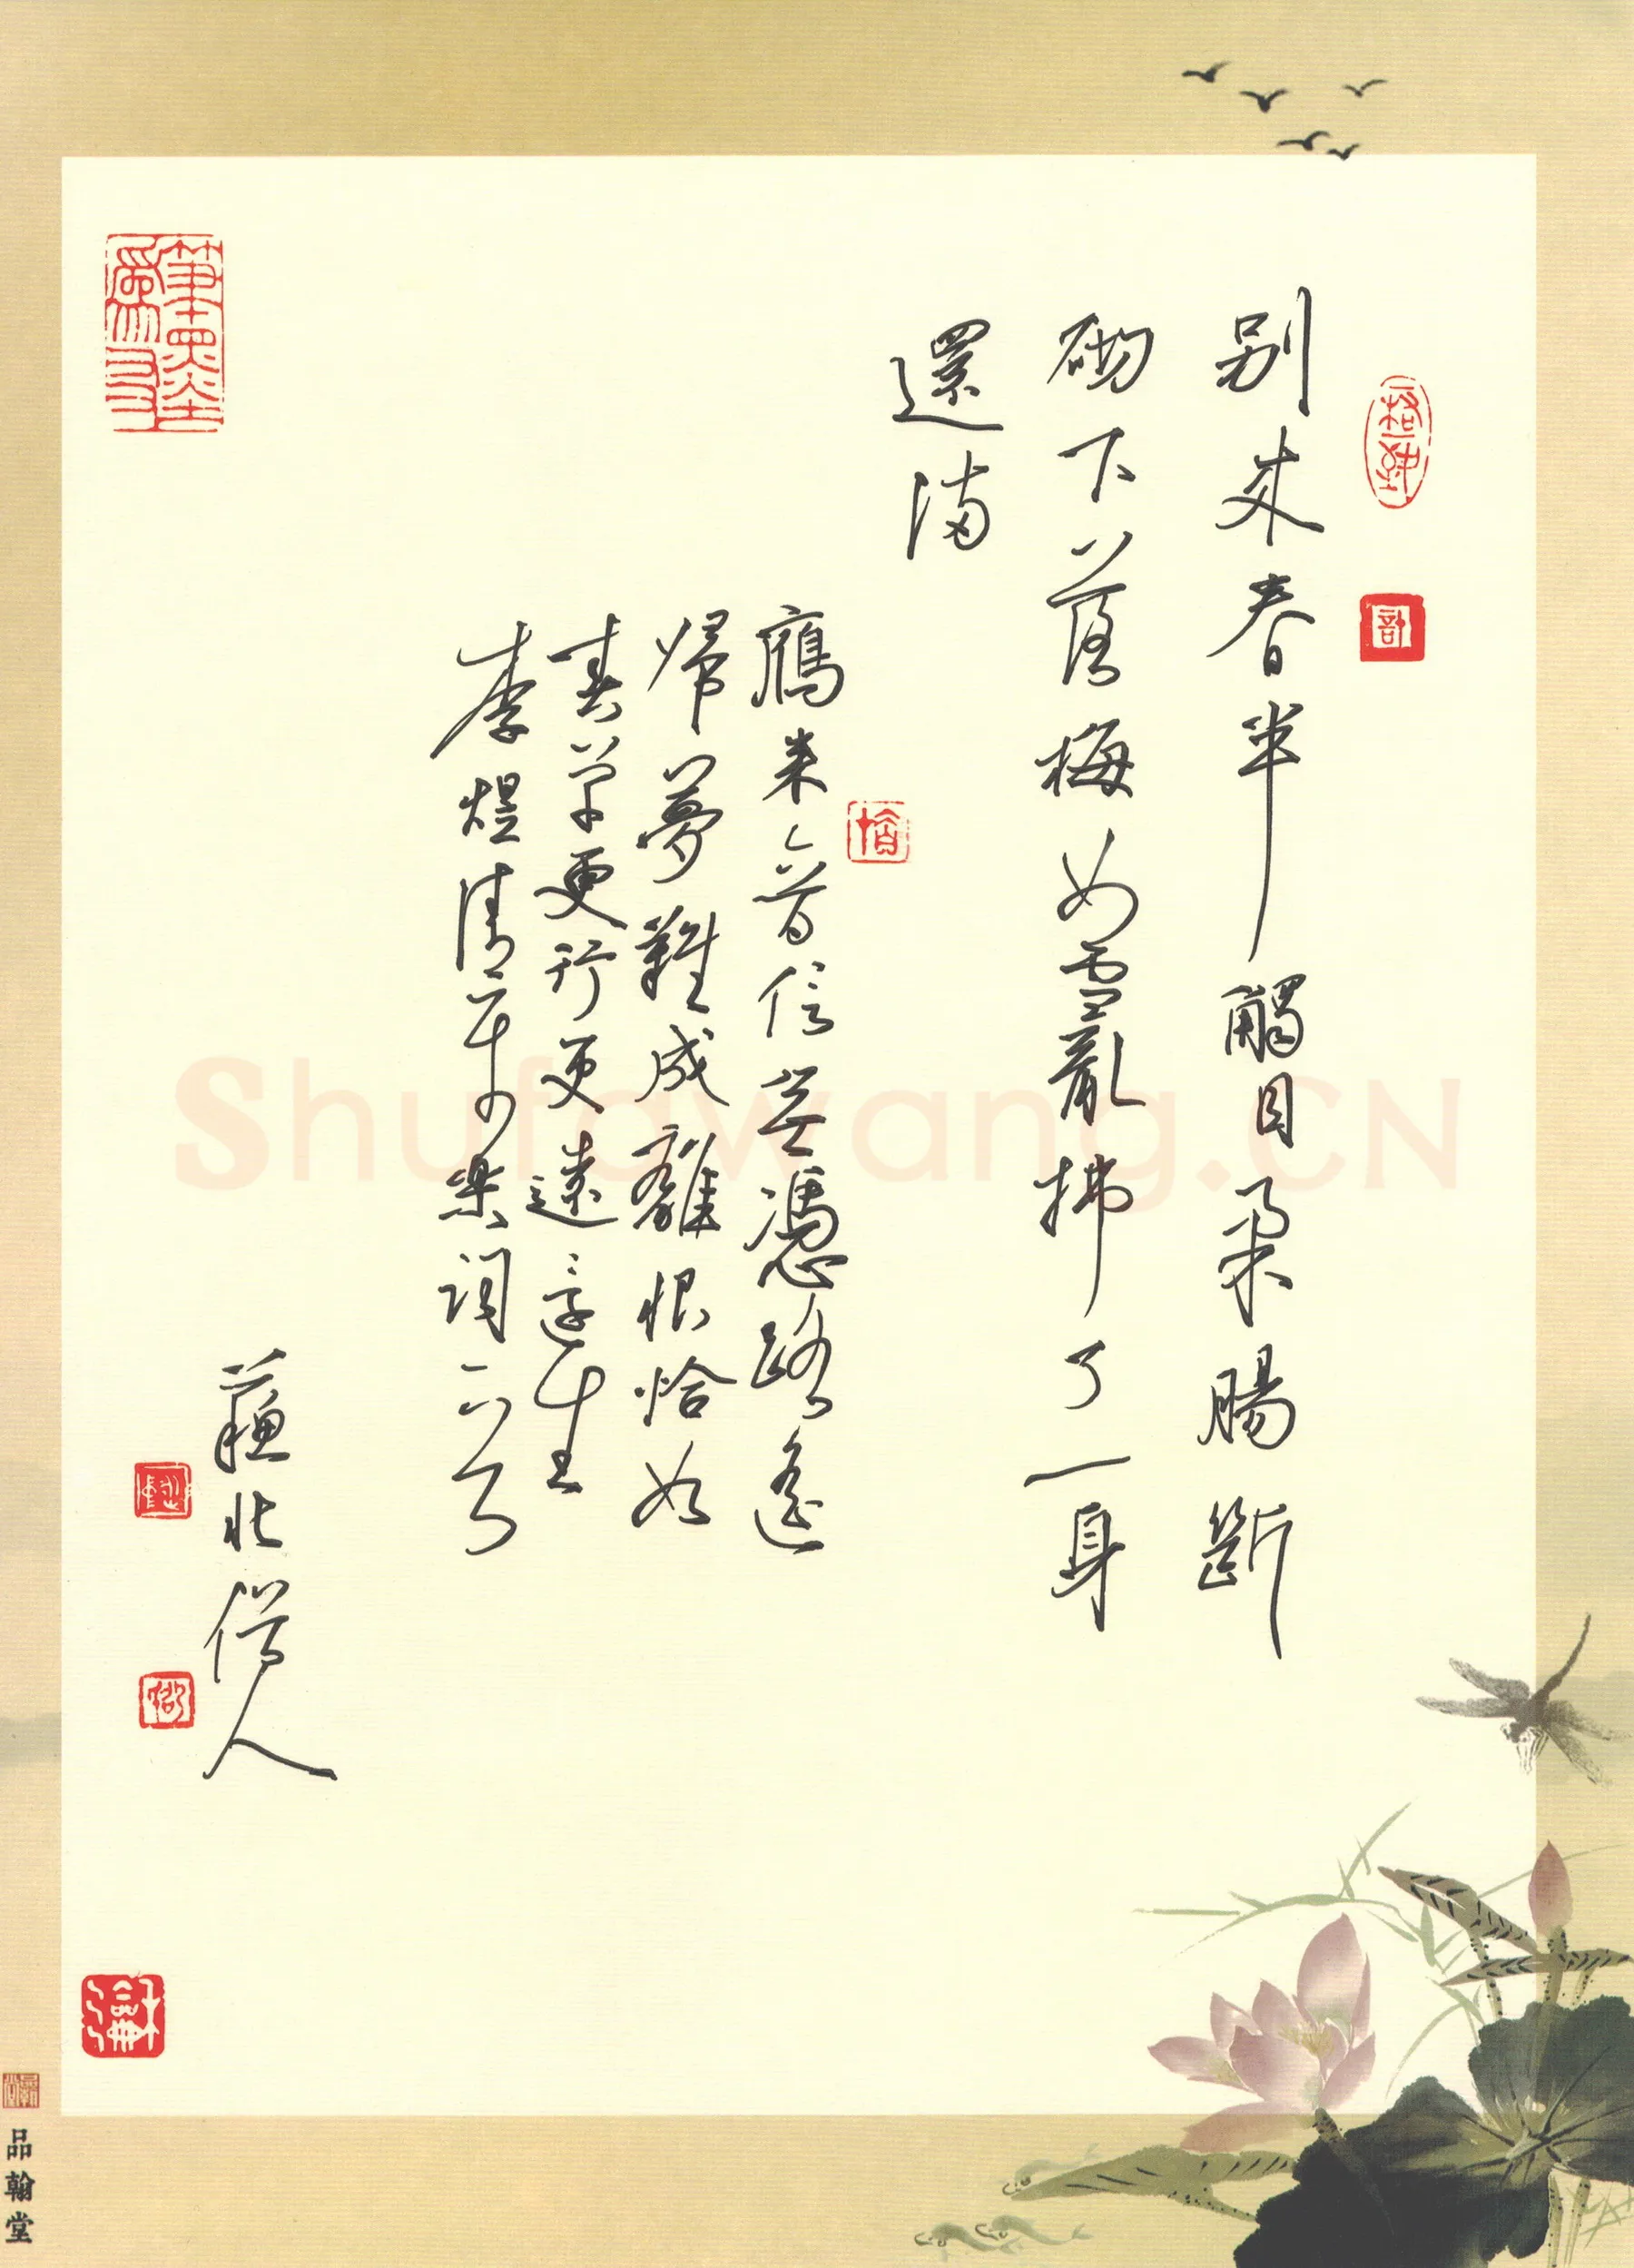 别来春半觸目柔腸斷
砌下落梅如雪亂拂了一身
還滿
鴈来音信無憑路遙
歸夢難成離恨恰如
春草更行更遠還生
李煜清平樂詞一首
北人
筆墨
Shufawang.CN
品翰堂